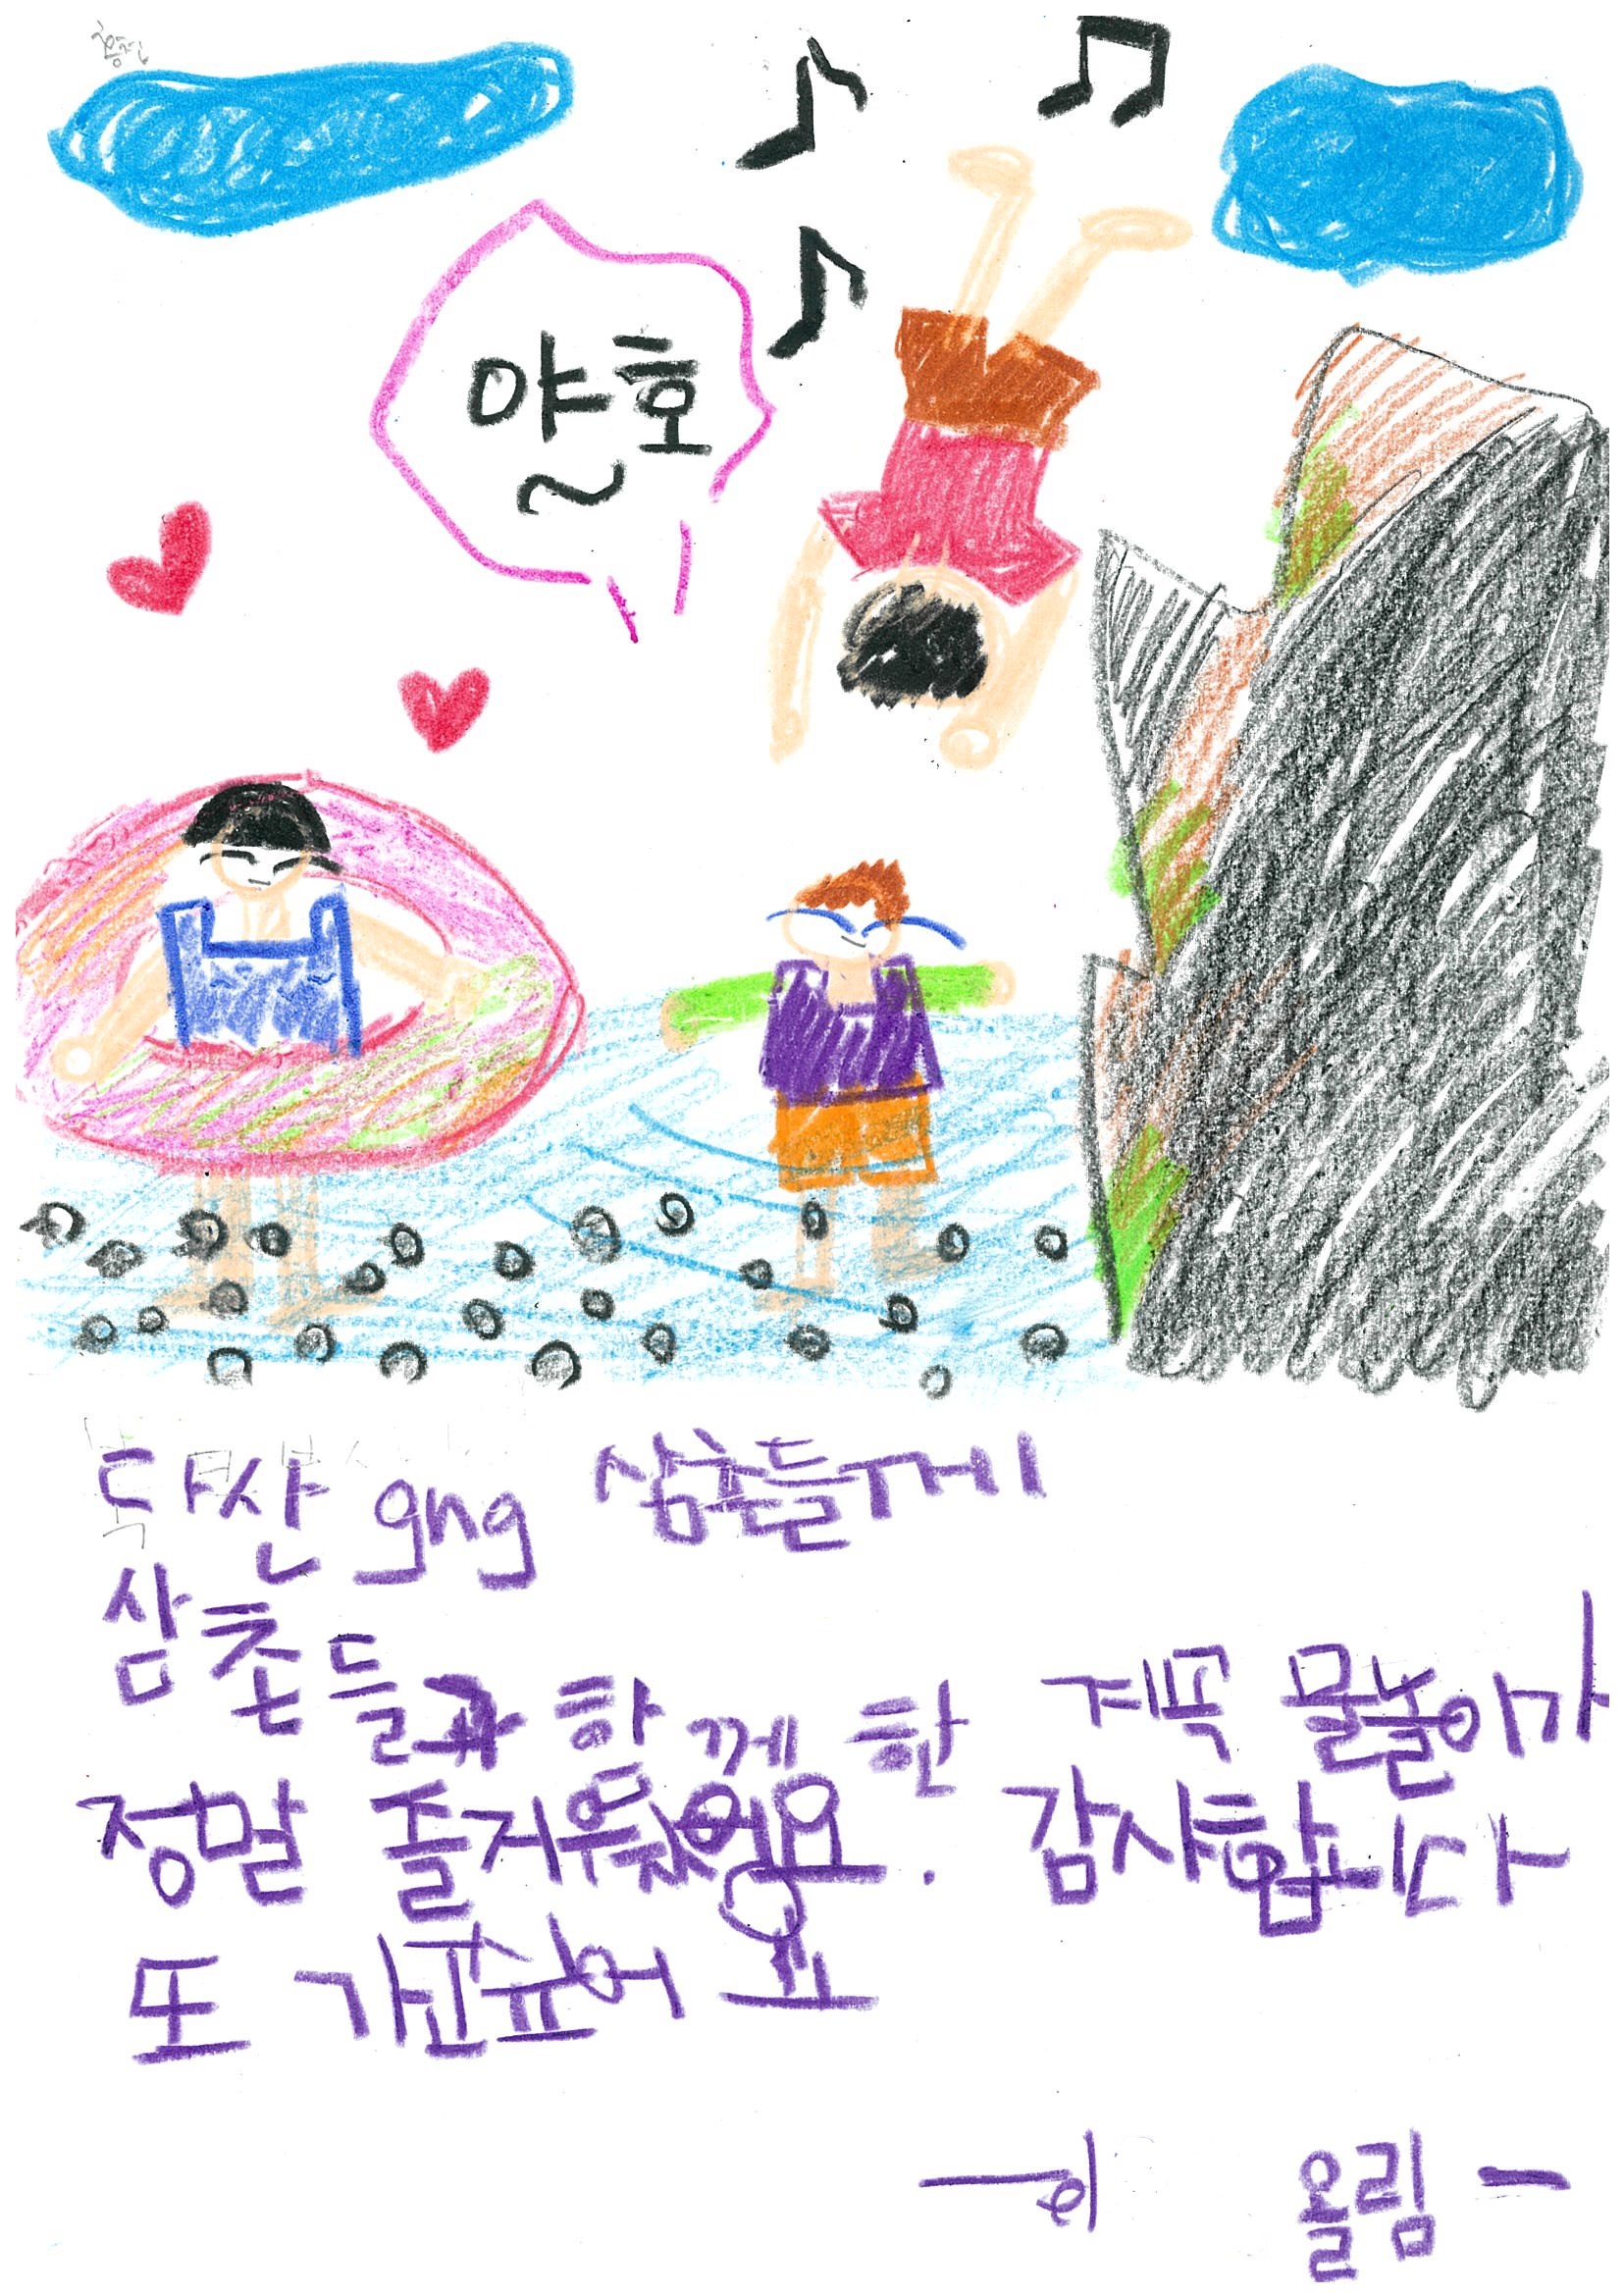 야호~
독산 gng 삼촌들께
삼촌들과 함께 한 계곡 물놀이가
정말 즐거웠어요. 감사합니다
또 가고싶어요
-이 올림-